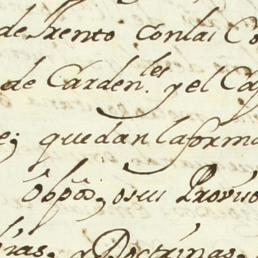 de Trento conlas Co
de Carden.les y el Ca
e; quedan la forma
Obpõs, o sus Provis
rias, y Doctrinas